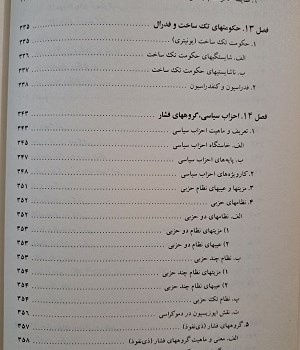 فصل ۱۳. حکومتهای تک ساخت و فدرال ۳۳۵
۱. حکومت تک ساخت (یونیتری) ۳۳۵
الف. شایستگیهای حکومت تک ساخت ۳۳۶
ب. ناشایستیهای حکومت تک ساخت ۳۳۷
۲. فدراسیون و کنفدراسیون ۳۳۸
فصل ۱۴. احزاب سیاسی، گروههای فشار ۳۴۳
۱. تعریف و ماهیت احزاب سیاسی ۳۴۳
الف. خاستگاه احزاب سیاسی ۳۴۵
ب. پایه‌های احزاب سیاسی ۳۴۷
۲. کارویژه‌های احزاب سیاسی ۳۴۸
۳. مزیتها و عیبهای نظام حزبی ۳۵۱
۴. نظامهای حزبی ۳۵۲
الف. نظامهای دو حزبی ۳۵۲
۱) مزیتهای نظام دو حزبی ۳۵۳
۲) عیبهای نظام دو حزبی ۳۵۳
ب. نظام چند حزبی ۳۵۳
۱) مزیتهای نظام چند حزبی ۳۵۴
۲) عیبهای نظام چند حزبی ۳۵۴
پ. نظام تک حزبی ۳۵۴
ت. نقش اپوزیسیون در دموکراسی ۳۵۶
۵. گروههای فشار (ذی‌نفوذ) ۳۵۷
الف. معنی و ماهیت گروههای فشار (ذی‌نفوذ) ۳۵۸